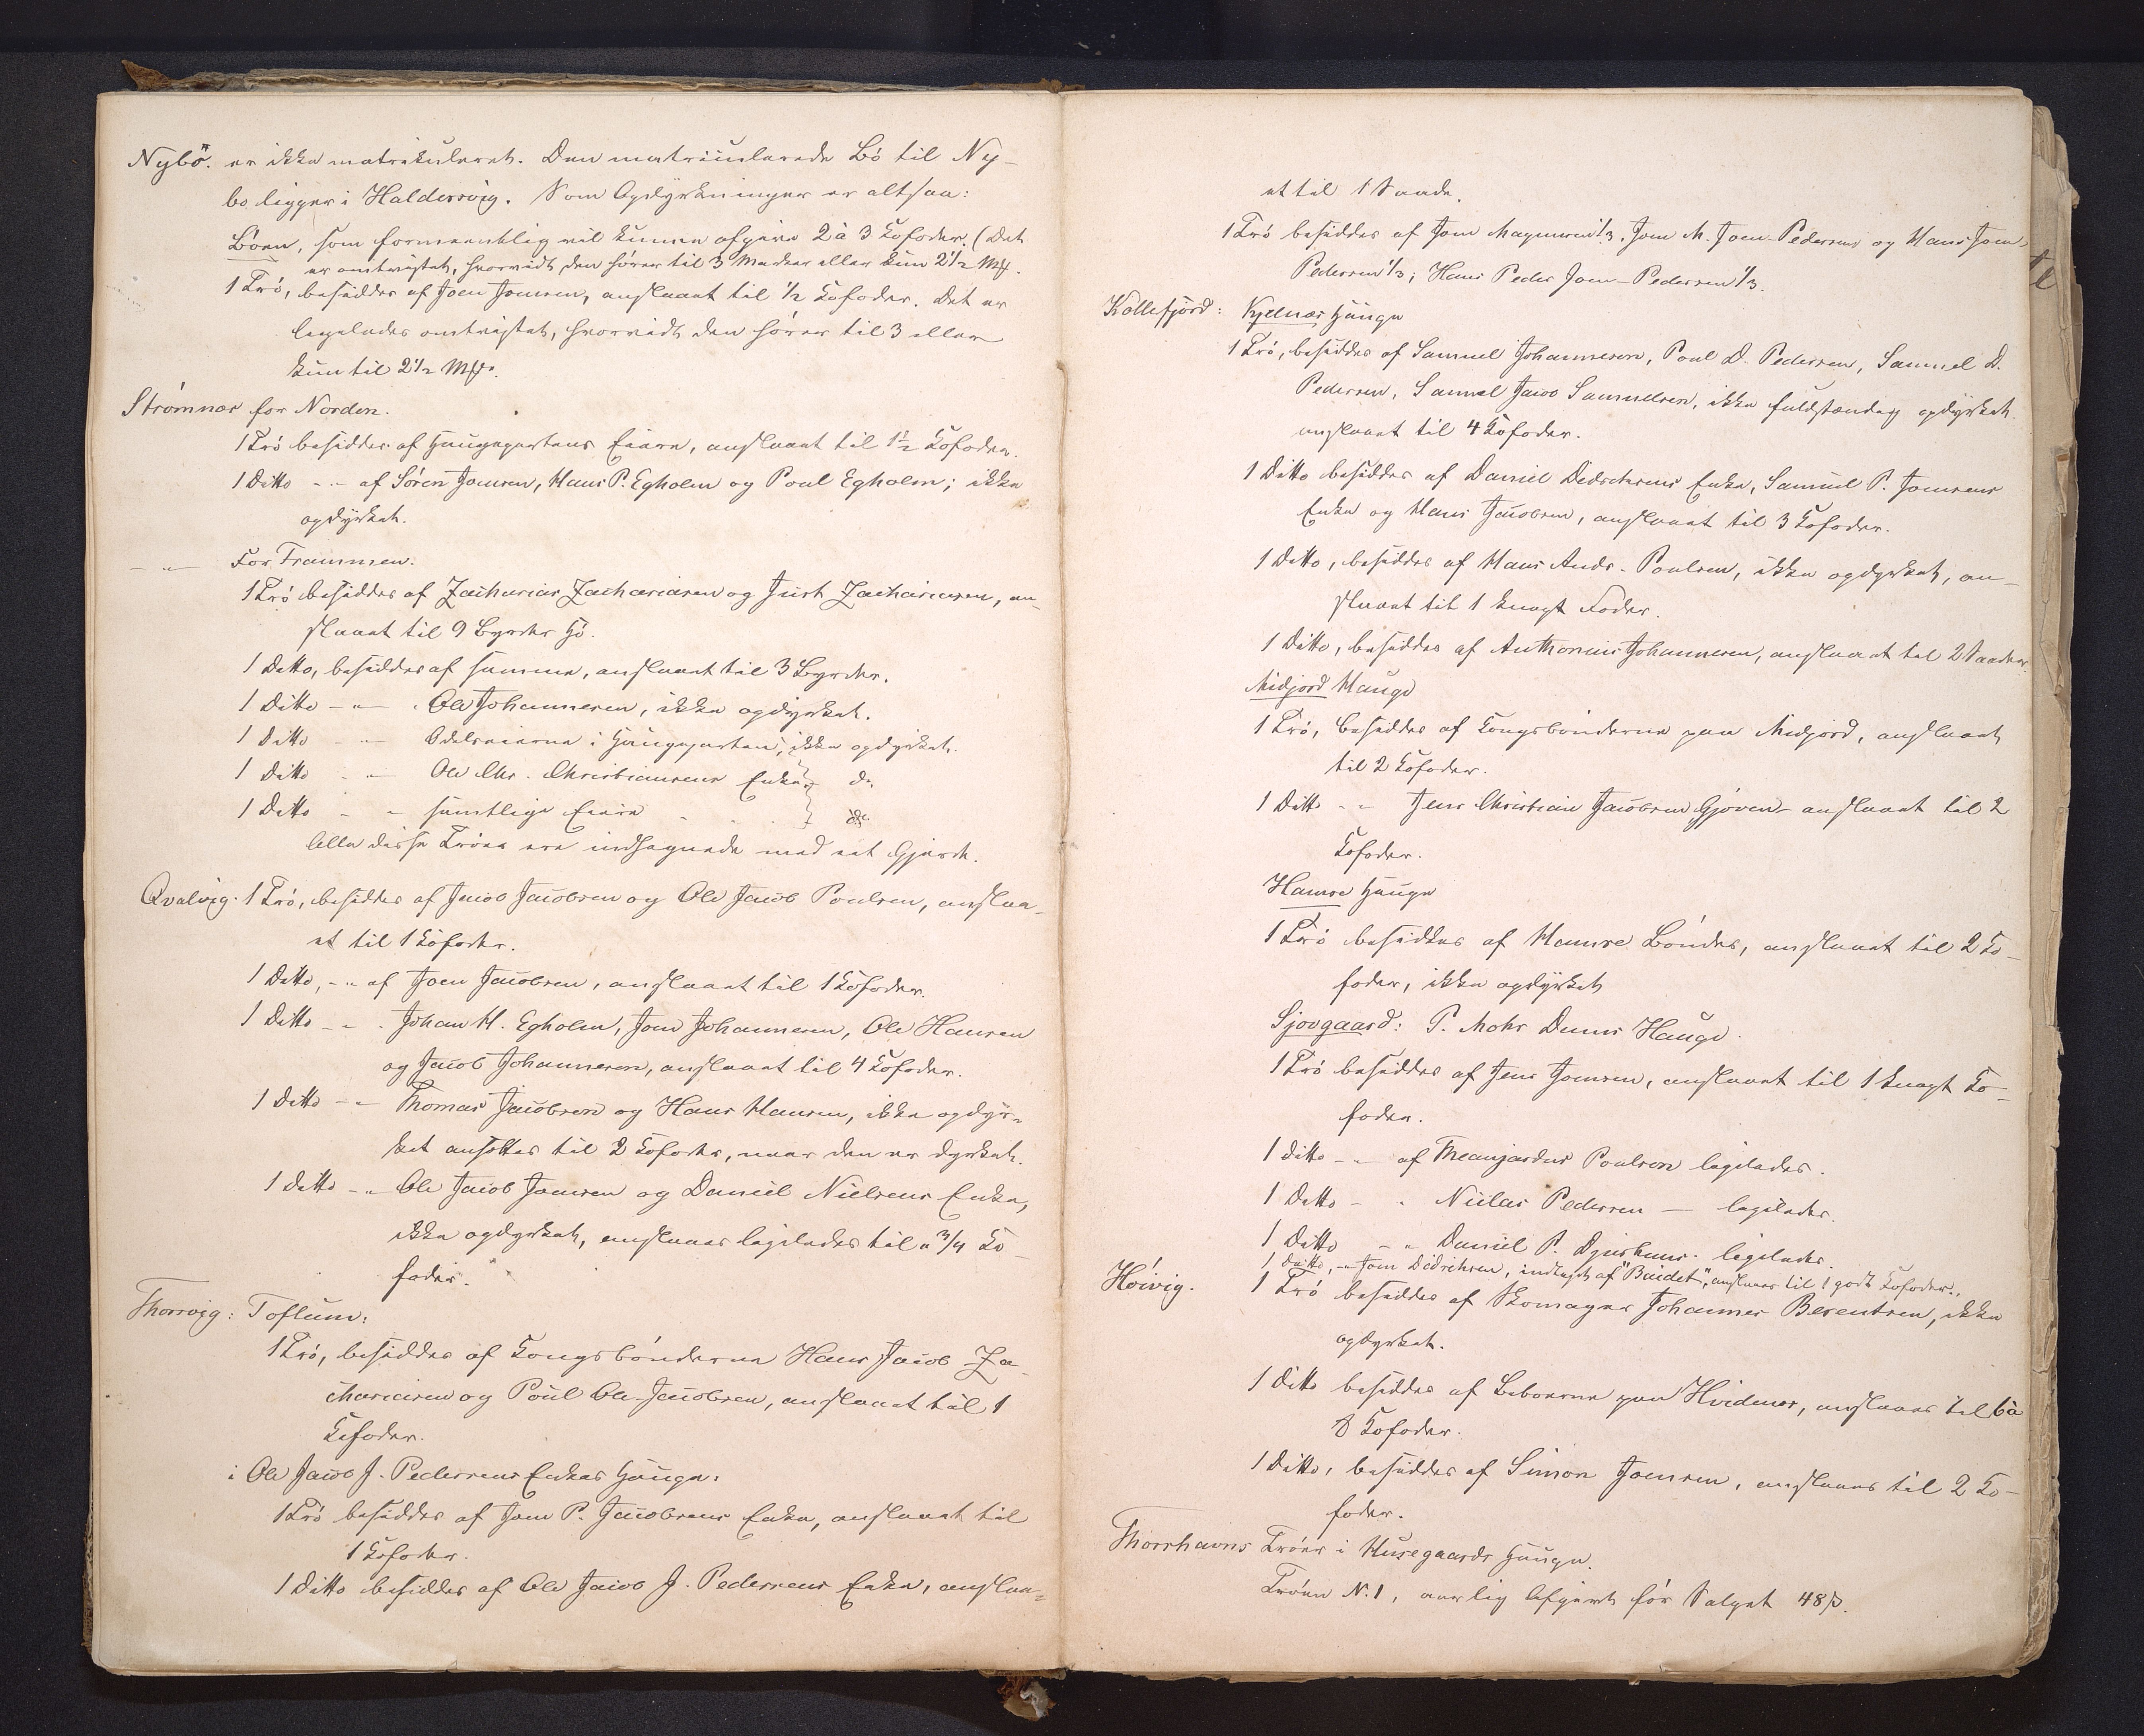 Nybø. er ikke matrikuleret. Den matriculerede Bø til Ny-
bø ligger i Haldersvig. Som Opdyrkninger er altsaa:
Bøen, som formeentlig vil kunne afgive 2 à 3 Kofoder. (Det
er omtvistet, hvorvidt den hører til 3 Marker eller kun 2½ Mk.
1 Trø, besiddes af Joen Joensen, anslaaet til ½ Kofoder. Det er
ligeledes omtvistet, hvorvidt den hører til 3 eller
kun til 2½ Mk.
Strømnæs for Norden.
1 Trø besiddes af Haugepartens Eiere, anslaaet til 1½ Kofoder.
1 Ditto -„- af Søren Joensen, Hans P. Egholm og Poul Egholm; ikke
opdyrket.
-„- For Frammen.
1 Trø besiddes af Zacharias Zachariasen og Just Zachariasen, an-
slaaet til 9 Byrder Hø.
1 Ditto, besiddes af samme, anslaaet til 3 Byrder.
1 Ditto -„- Ole Johannesen, ikke opdyrket.
1 Ditto -„- Odelseierne i Haugeparten, ikke opdyrket.
1 Ditto -„- Ole Chr. Christiansens Enke do
1 Ditto -„- samtlige Eiere do
Alle disse Trøer ere indhegnede med eet Gjerde.
Qvalvig. 1 Trø, besiddes af Jacob Jacobsen og Ole Jacob Poulsen, anslaa-
et til 1 Kofoder.
1 Ditto, -„- af Joen Jacobsen, anslaaet til 1 Kofoder.
1 Ditto -„- Johan M. Egholm, Joen Johannesen, Ole Hansen
og Jacob Johannesen, anslaaet til 4 Kofoder.
1 Ditto -„- Thomas Jacobsen og Hans Hansen, ikke opdyr-
ket ansættes til 2 Kofoder, naar den er dyrket.
1 Ditto -„- Ole Jacob Joensen og Daniel Nielsens Enke,
ikke opdyrket, anslaaes ligeledes til a 3/4 Ko-
foder.
Thorsvig: Toftum:
1 Trø, besiddes af Kongsbønderne Hans Jacob Za-
chariasen og Poul Ole Jacobsen, anslaaet til 1
Kofoder.
i Ole Jacob J. Pedersens Enkes Hauge:
1 Trø besiddes af Joen P. Jacobsens Enke, anslaaet til
1 Kofoder.
1 Ditto besiddes af Ole Jacob J. Pedersens Enke, anslaa-
et til 1 Saade.
1 Trø besiddes af Joen Magnusen 1/3, Joen M. Joen-Pedersens og Hans Joen-
Pedersen 1/3; Hans Peder Joen-Pedersen 1/3.
Kollefjord: Kjelnæs Hauge
1 Trø, besiddes af Samuel Johannesen, Poul D. Pedersen, Samuel D.
Pedersen, Samuel Jacob Samuelsen, ikke fuldstændig opdyrket
anslaaet til 4 Kofoder.
1 Ditto besiddes af Daniel Didrichsens Enke, Samuel P. Joensens
Enke og Hans Jacobsen, anslaaet til 3 Kofoder.
1 Ditto, besiddes af Hans Andr. Poulsen, ikke opdyrket, an-
slaaet til 1 knapt Foder.
1 Ditto, besiddes af Anthonius Johannesen, anslaaet til 2 Saader
Midjord Hauge
1 Trø, besiddes af Kongsbønderne paa Midjord, anslaaet
til 2 Kofoder.
1 Ditto -„- Jens Christian Jacobsen Gjøven- anslaaet til 2
Kofoder.
Hamre Hauge
1 Trø besiddes af Hamre Bønder, anslaaet til 2 Ko-
foder, ikke opdyrket
Sjovgaard: P. Mohr Dams Hauge.
1 Trø besiddes af Jens Joensen, anslaaet til 1 knapt Ko-
foder.
1 Ditto -„- af Meinjardus Poulsen ligeledes.
1 Ditto -„- Niclas Pedersen — ligeledes.
1 Ditto -„- Daniel P. Djurhuus. ligeledes.
1 Ditto, -„- Joen Didrichsen, indtaget af "Baudet", anslaaes til 1 godt Kofoder.
Hoivig. 1 Trø besiddes af Skomager Johannes Berentsen, ikke
opdyrket.
1 Ditto besiddes af Beboerne paa Hvidenæs, anslaaes til 6 à
8 Kofoder.
1 Ditto, besiddes af Simon Joensen, anslaaes til 2 Ko-
foder.
Thorshavns Trøer i Husegaards Hauge.
Trøen N. 1, aarlig Afgivt før Salget 48 ß.